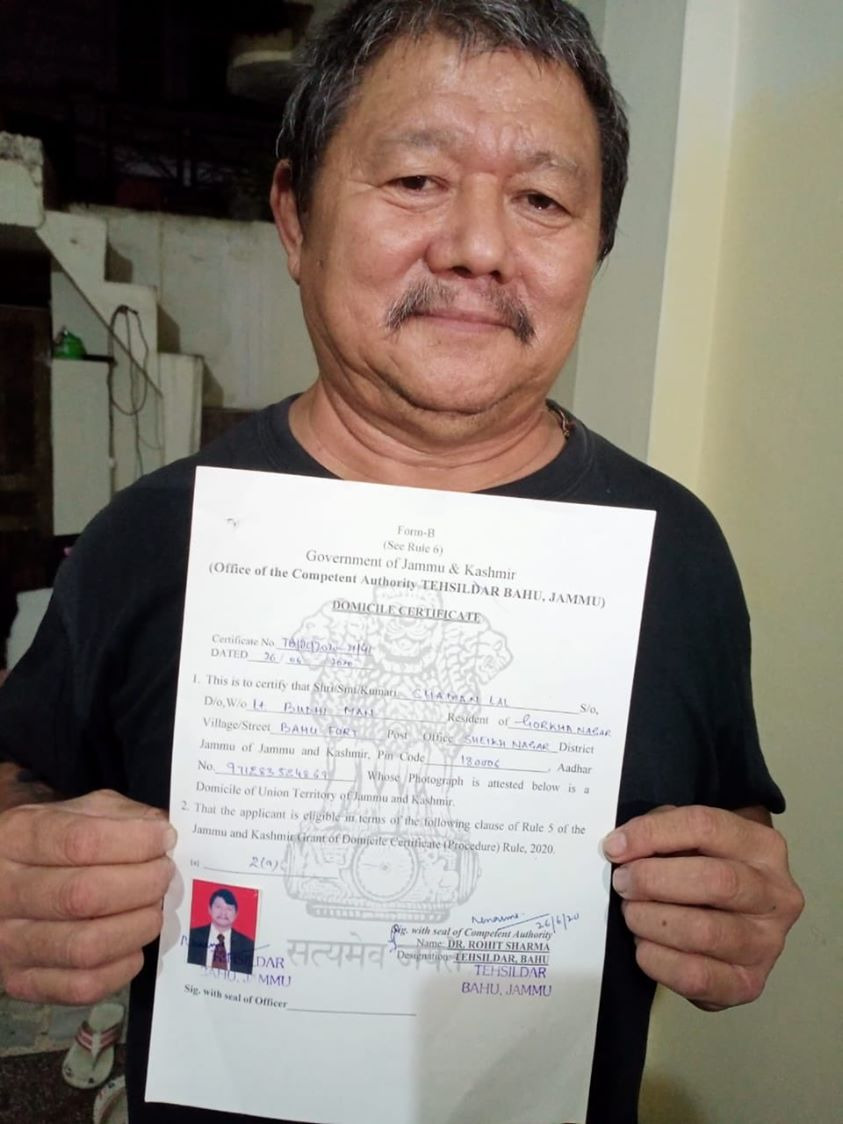 Form-B
(See Rule 6)
Government of Jammu & Kashmir
(Office of the Competent Authority TEHSILDAR BAHU, JAMMU)
DOMICILE CERTIFICATE
Certificate No.
DATED 26/06 2020
1. This is to certify that Shri/Smt/Kumari CHAMAN LAL S/o,
D/o,W/o Lt. BUDHI MAN Resident of GORKHA NAGAR
Village/Street BAHU FORT Post Office SHEIKH NAGAR District
Jammu of Jammu and Kashmir, Pin Code 180006, Aadhar
No. Whose Photograph is attested below is a
Domicile of Union Territory of Jammu and Kashmir.
2. That the applicant is eligible in terms of the following clause of Rule 5 of the
Jammu and Kashmir Grant of Domicile Certificate (Procedure) Rule, 2020.
(a) 2(a)
26/6/20
Sig. with seal of Competent Authority
Name: DR. ROHIT SHARMA
Designation: TEHSILDAR, BAHU
सत्यमेव जयते
TEHSILDAR
BAHU, JAMMU
TEHSILDAR
BAHU, JAMMU
Sig. with seal of Officer